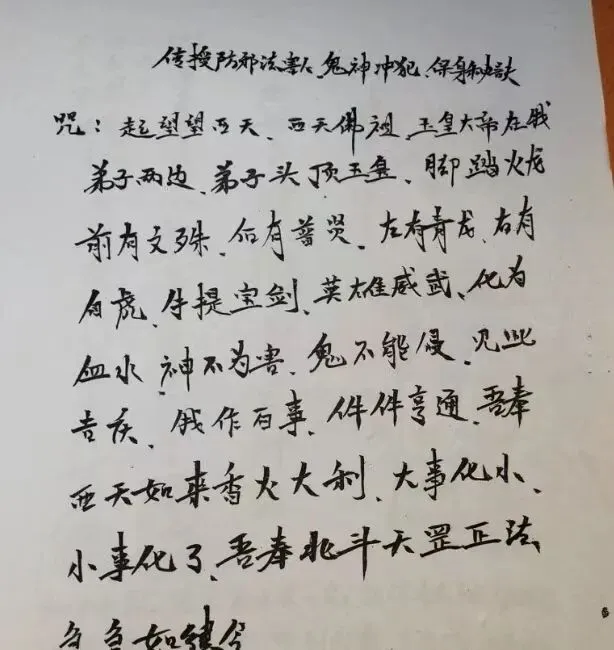 传授防邪法害人、鬼神冲犯、保身秘诀
咒：起望望西天、西天佛祖、玉皇大帝在我
弟子两边、弟子头顶玉皇、脚踏火龙
前有文殊、后有普贤、左有青龙、右有
白虎、手提宝剑、英雄威武、化为
血水、神不为害、鬼不能侵、见此
吉庆、我作百事、件件亨通、吾奉
西天如来香火大利、大事化小、
小事化了、吾奉北斗天罡正法、
急急如律令